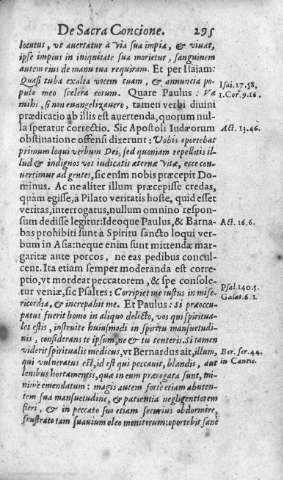 De Sacra Concione. 295
locutus, vt auertatur à via sua impia, & viuat,
ipse impius in iniquitate sua morietur, sanguinem
autem eius de manu tua requiram. Et per Isaiam:
Quasi tuba exalta vocem tuam, & annuncia po-
pulo meo scelera eorum. Quare Paulus: Væ
mihi, si non euangelizauero, tamen verbi diuini
prædicatio ab illis est auertenda, quorum nul-
la speratur correctio. Sic Apostoli Iudæorum
obstinatione offensi dixerunt: Vobis oportebat
primum loqui verbum Dei, sed quoniam repellitis il-
lud & indignos vos iudicatis æternæ vitæ, ecce con-
uertimur ad gentes, sic enim nobis præcepit Do-
minus. Ac ne aliter illum præcepisse credas,
quam egisse, à Pilato veritatis hoste, quid esset
veritas, interrogatus, nullum omnino respon-
sum dedisse legitur: Ideoque Paulus, & Barna-
bas prohibiti sunt à Spiritu sancto loqui ver-
bum in Asia: neque enim sunt mittendæ mar-
garitæ ante porcos, ne eas pedibus concul-
cent. Ita etiam semper moderanda est corre-
ptio, vt mordeat peccatorem, & spe console-
tur veniæ, sic Psaltes: Corripiet me iustus in mise-
ricordia, & increpabit me. Et Paulus: Si præoccu-
patus fuerit homo in aliquo delicto, vos qui spiritua-
les estis, instruite huiusmodi in spiritu mansuetudi-
nis, considerans te ipsum, ne & tu tenteris. Si tamen
viderit spiritualis medicus, vt Bernardus ait, illum,
qui vulneratus est, id est qui peccauit, blandis, aut
lenibus hortamentis, quæ in eum prærogata sunt, mi-
nime emendatum: magis autem forte etiam abuten-
tem sua mansuetudine, & patientia negligentiorem
fieri, & in peccato suo etiam securius obdormire,
frustrato tam suauium oleo monitorum: oportebit sanè
Isai. 17. 58.
1. Cor. 9. 16.
Act. 13. 46.
Act. 16. 6.
Psal. 140. 5.
Galat. 6. 1.
Ber. ser. 44.
in Cantic.